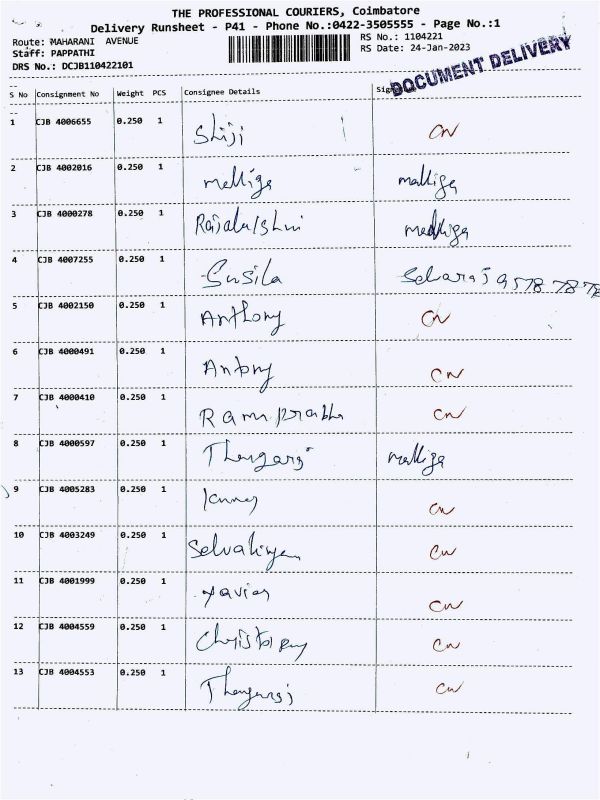 THE PROFESSIONAL COURIERS, Coimbatore
Delivery Runsheet - P41 - Phone No.:0422-3505555 - Page No.:1
Route: MAHARANI AVENUE
RS No.: 1104221
Staff: PAPPATHI
RS Date: 24-Jan-2023
DRS No.: DCJB110422101
DOCUMENT DELIVERY
S No Consignment No Weight PCS Consignee Details
1 CJB 4006655 0.250 1 Shiji CN
2 CJB 4002016 0.250 1 malliga malliga
3 CJB 4000278 0.250 1 malliga
4 CJB 4007255 0.250 1 Susila
5 CJB 4002150 0.250 1 Anthony CN
6 CJB 4000491 0.250 1 Antony CN
7 CJB 4000410 0.250 1 Rama prabha CN
8 CJB 4000597 0.250 1 malliga
9 CJB 4005283 0.250 1 CN
10 CJB 4003249 0.250 1 CN
11 CJB 4001999 0.250 1 Xavier CN
12 CJB 4004559 0.250 1 CN
13 CJB 4004553 0.250 1 CN